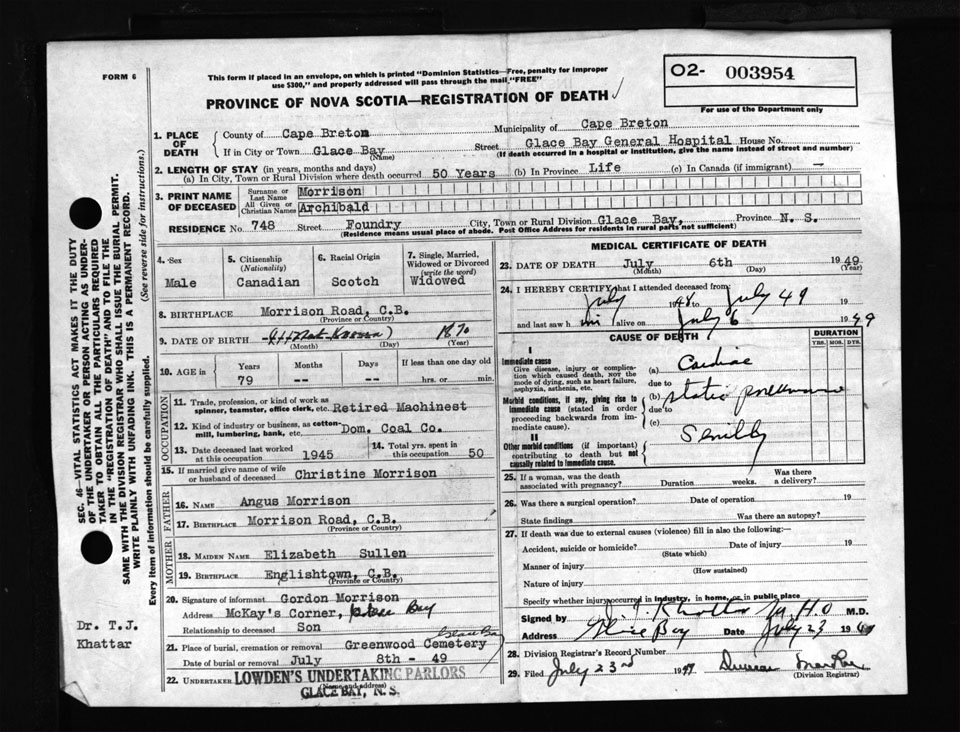 FORM 6
This form if placed in an envelope, on which is printed "Dominion Statistics—Free, penalty for improper
use $300," and properly addressed will pass through the mail "FREE"
O2- 003954
For use of the Department only
PROVINCE OF NOVA SCOTIA—REGISTRATION OF DEATH
SEC. 46—VITAL STATISTICS ACT MAKES IT THE DUTY
OF THE UNDERTAKER OR PERSON ACTING AS UNDER-
TAKER TO OBTAIN ALL THE PARTICULARS REQUIRED
IN THE "REGISTRATION OF DEATH" AND TO FILE THE
SAME WITH THE DIVISION REGISTRAR WHO SHALL ISSUE THE BURIAL PERMIT.
WRITE PLAINLY WITH UNFADING INK. THIS IS A PERMANENT RECORD.
Every item of information should be carefully supplied. (See reverse side for instructions.)
1. PLACE OF DEATH
County of Cape Breton Municipality of Cape Breton
If in City or Town Glace Bay Street Glace Bay General Hospital House No.
(Name) (If death occurred in a hospital or institution, give the name instead of street and number)
2. LENGTH OF STAY (in years, months and days)
(a) In City, Town or Rural Division where death occurred 50 Years (b) In Province Life (c) In Canada (if immigrant) —
3. PRINT NAME OF DECEASED
Surname or Last Name Morrison
All Given or Christian Names Archibald
RESIDENCE No 748 Street Foundry City, Town or Rural Division Glace Bay, Province N. S.
(Residence means usual place of abode. Post Office Address for residents in rural parts not sufficient)
4. Sex Male
5. Citizenship (Nationality) Canadian
6. Racial Origin Scotch
7. Single, Married, Widowed or Divorced (write the word) Widowed
8. BIRTHPLACE Morrison Road, C.B.
(Province or Country)
9. DATE OF BIRTH Not Known) 1870
(Month) (Day) (Year)
10. AGE in Years 79 Months -- Days -- If less than one day old hrs. or min.
OCCUPATION
11. Trade, profession, or kind of work as
spinner, teamster, office clerk, etc. Retired Machinest
12. Kind of industry or business, as cotton-
mill, lumbering, bank, etc. Dom. Coal Co.
13. Date deceased last worked at this occupation 1945
14. Total yrs. spent in this occupation 50
15. If married give name of wife or husband of deceased Christine Morrison
FATHER
16. NAME Angus Morrison
17. BIRTHPLACE Morrison Road, C.B.
(Province or Country)
MOTHER
18. MAIDEN NAME Elizabeth Sullen
19. BIRTHPLACE Englishtown, C.B.
(Province or Country)
20. Signature of informant Gordon Morrison
Address McKay's Corner, Glace Bay
Relationship to deceased Son
21. Place of burial, cremation or removal Greenwood Cemetery Glace Bay
Date of burial or removal July 8th - 49
22. UNDERTAKER LOWDEN'S UNDERTAKING PARLORS
(Name and address)
GLACE BAY, N. S.
Dr. T.J.
Khattar
MEDICAL CERTIFICATE OF DEATH
23. DATE OF DEATH July 6th 1949
(Month) (Day) (Year)
24. I HEREBY CERTIFY that I attended deceased from:
July 1948 July 49 19
and last saw him alive on July 6 1949
CAUSE OF DEATH DURATION
YRS. MOS. DYS.
I
Immediate cause
Give disease, injury or complica-
tion which caused death, not the
mode of dying, such as heart failure,
asphyxia, asthenia, etc.
(a) Cardiac
due to
Morbid conditions, if any, giving rise to
immediate cause (stated in order
proceeding backwards from im-
mediate cause).
(b) static pneumonia
due to
(c) Senility
II
Other morbid conditions (if important)
contributing to death but not
causally related to immediate cause.
25. If a woman, was the death associated with pregnancy? Duration weeks. Was there a delivery?
26. Was there a surgical operation? Date of operation 19
State findings Was there an autopsy?
27. If death was due to external causes (violence) fill in also the following:—
Accident, suicide or homicide? Date of injury 19
(State which)
Manner of injury
(How sustained)
Nature of injury
Specify whether injury occurred in industry, in home, or in public place
Signed by T. J. Khattar M.H.O M.D.
Address Glace Bay Date July 23 1949
28. Division Registrar's Record Number
29. Filed July 23rd 1949 Duncan
(Division Registrar)